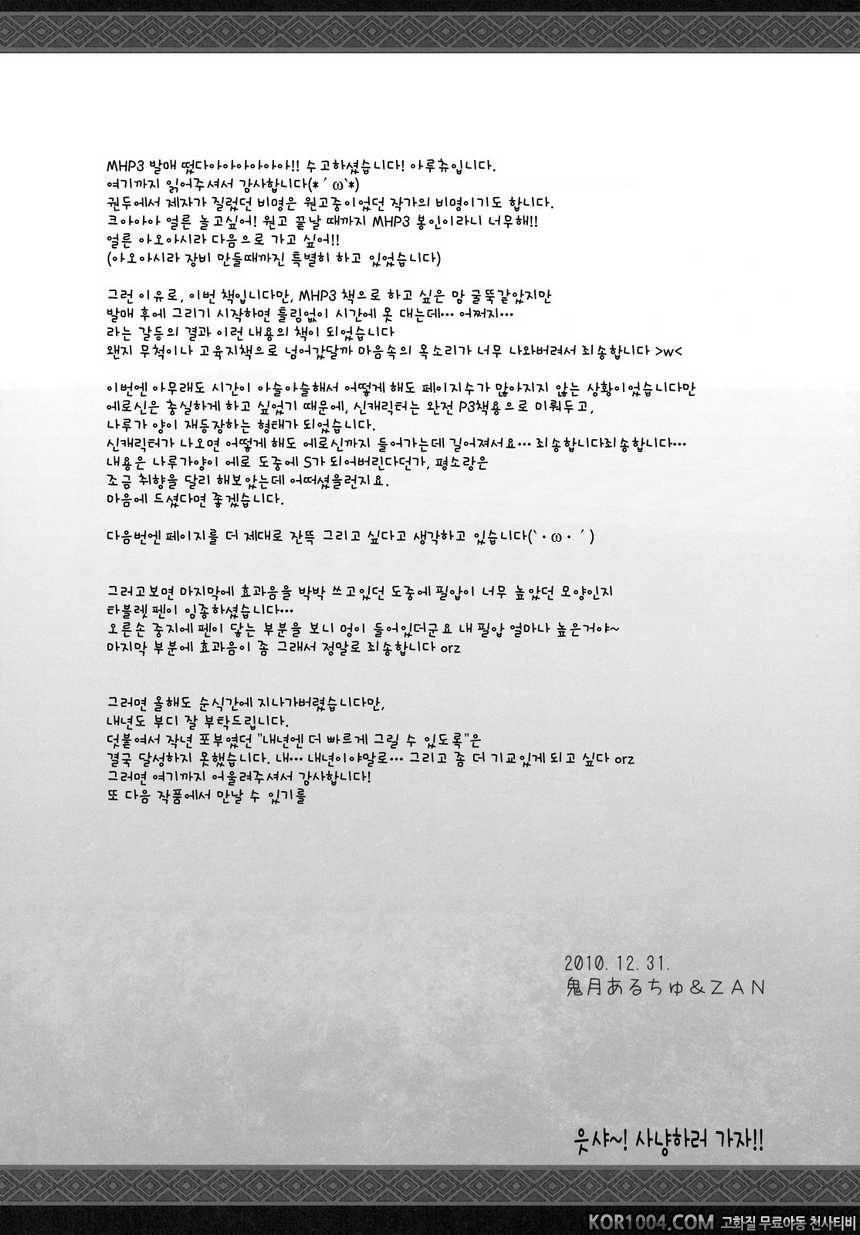 MHP3 발매 떴다아아아아아아!! 수고하셨습니다! 아루츄입니다.
여기까지 읽어주셔서 감사합니다(*´ω`*)
권두에서 제자가 질렀던 비명은 원고중이었던 작가의 비명이기도 합니다.
크아아아 얼른 놀고싶어! 원고 끝날 때까지 MHP3 봉인이라니 너무해!!
얼른 아오아시라 다음으로 가고 싶어!!
(아오아시라 장비 만들때까진 특별히 하고 있었습니다)
그런 이유로, 이번 책입니다만, MHP3 책으로 하고 싶은 맘 굴뚝같았지만
발매 후에 그리기 시작하면 틀림없이 시간에 못 대는데… 어쩌지…
라는 갈등의 결과 이런 내용의 책이 되었습니다
왠지 무척이나 고육지책으로 넘어갔달까 마음속의 목소리가 너무 나와버려서 죄송합니다 >w<
이번엔 아무래도 시간이 아슬아슬해서 어떻게 해도 페이지수가 많아지지 않는 상황이었습니다만
에로신은 충실하게 하고 싶었기 때문에, 신캐릭터는 완전 P3책용으로 미뤄두고,
나루가 양이 재등장하는 형태가 되었습니다.
신캐릭터가 나오면 어떻게 해도 에로신까지 들어가는데 길어져서요… 죄송합니다죄송합니다…
내용은 나루가양이 에로 도중에 S가 되어버린다던가, 평소랑은
조금 취향을 달리 해보았는데 어떠셨을런지요.
마음에 드셨다면 좋겠습니다.
다음번엔 페이지를 더 제대로 잔뜩 그리고 싶다고 생각하고 있습니다(`・ω・´)
그러고보면 마지막에 효과음을 박박 쓰고있던 도중에 필압이 너무 높았던 모양인지
타블렛 펜이 임종하셨습니다…
오른손 중지에 펜이 닿는 부분을 보니 멍이 들어있더군요 내 필압 얼마나 높은거야~
마지막 부분에 효과음이 좀 그래서 정말로 죄송합니다 orz
그러면 올해도 순식간에 지나가버렸습니다만,
내년도 부디 잘 부탁드립니다.
덧붙여서 작년 포부였던 "내년엔 더 빠르게 그릴 수 있도록"은
결국 달성하지 못했습니다. 내… 내년이야말로… 그리고 좀 더 기교있게 되고 싶다 orz
그러면 여기까지 어울려주셔서 감사합니다!
또 다음 작품에서 만날 수 있기를
2010.12.31.
鬼月あるちゅ&ZAN
읏샤~! 사냥하러 가자!!
KOR1004.COM 고화질 무료야동 천사티비